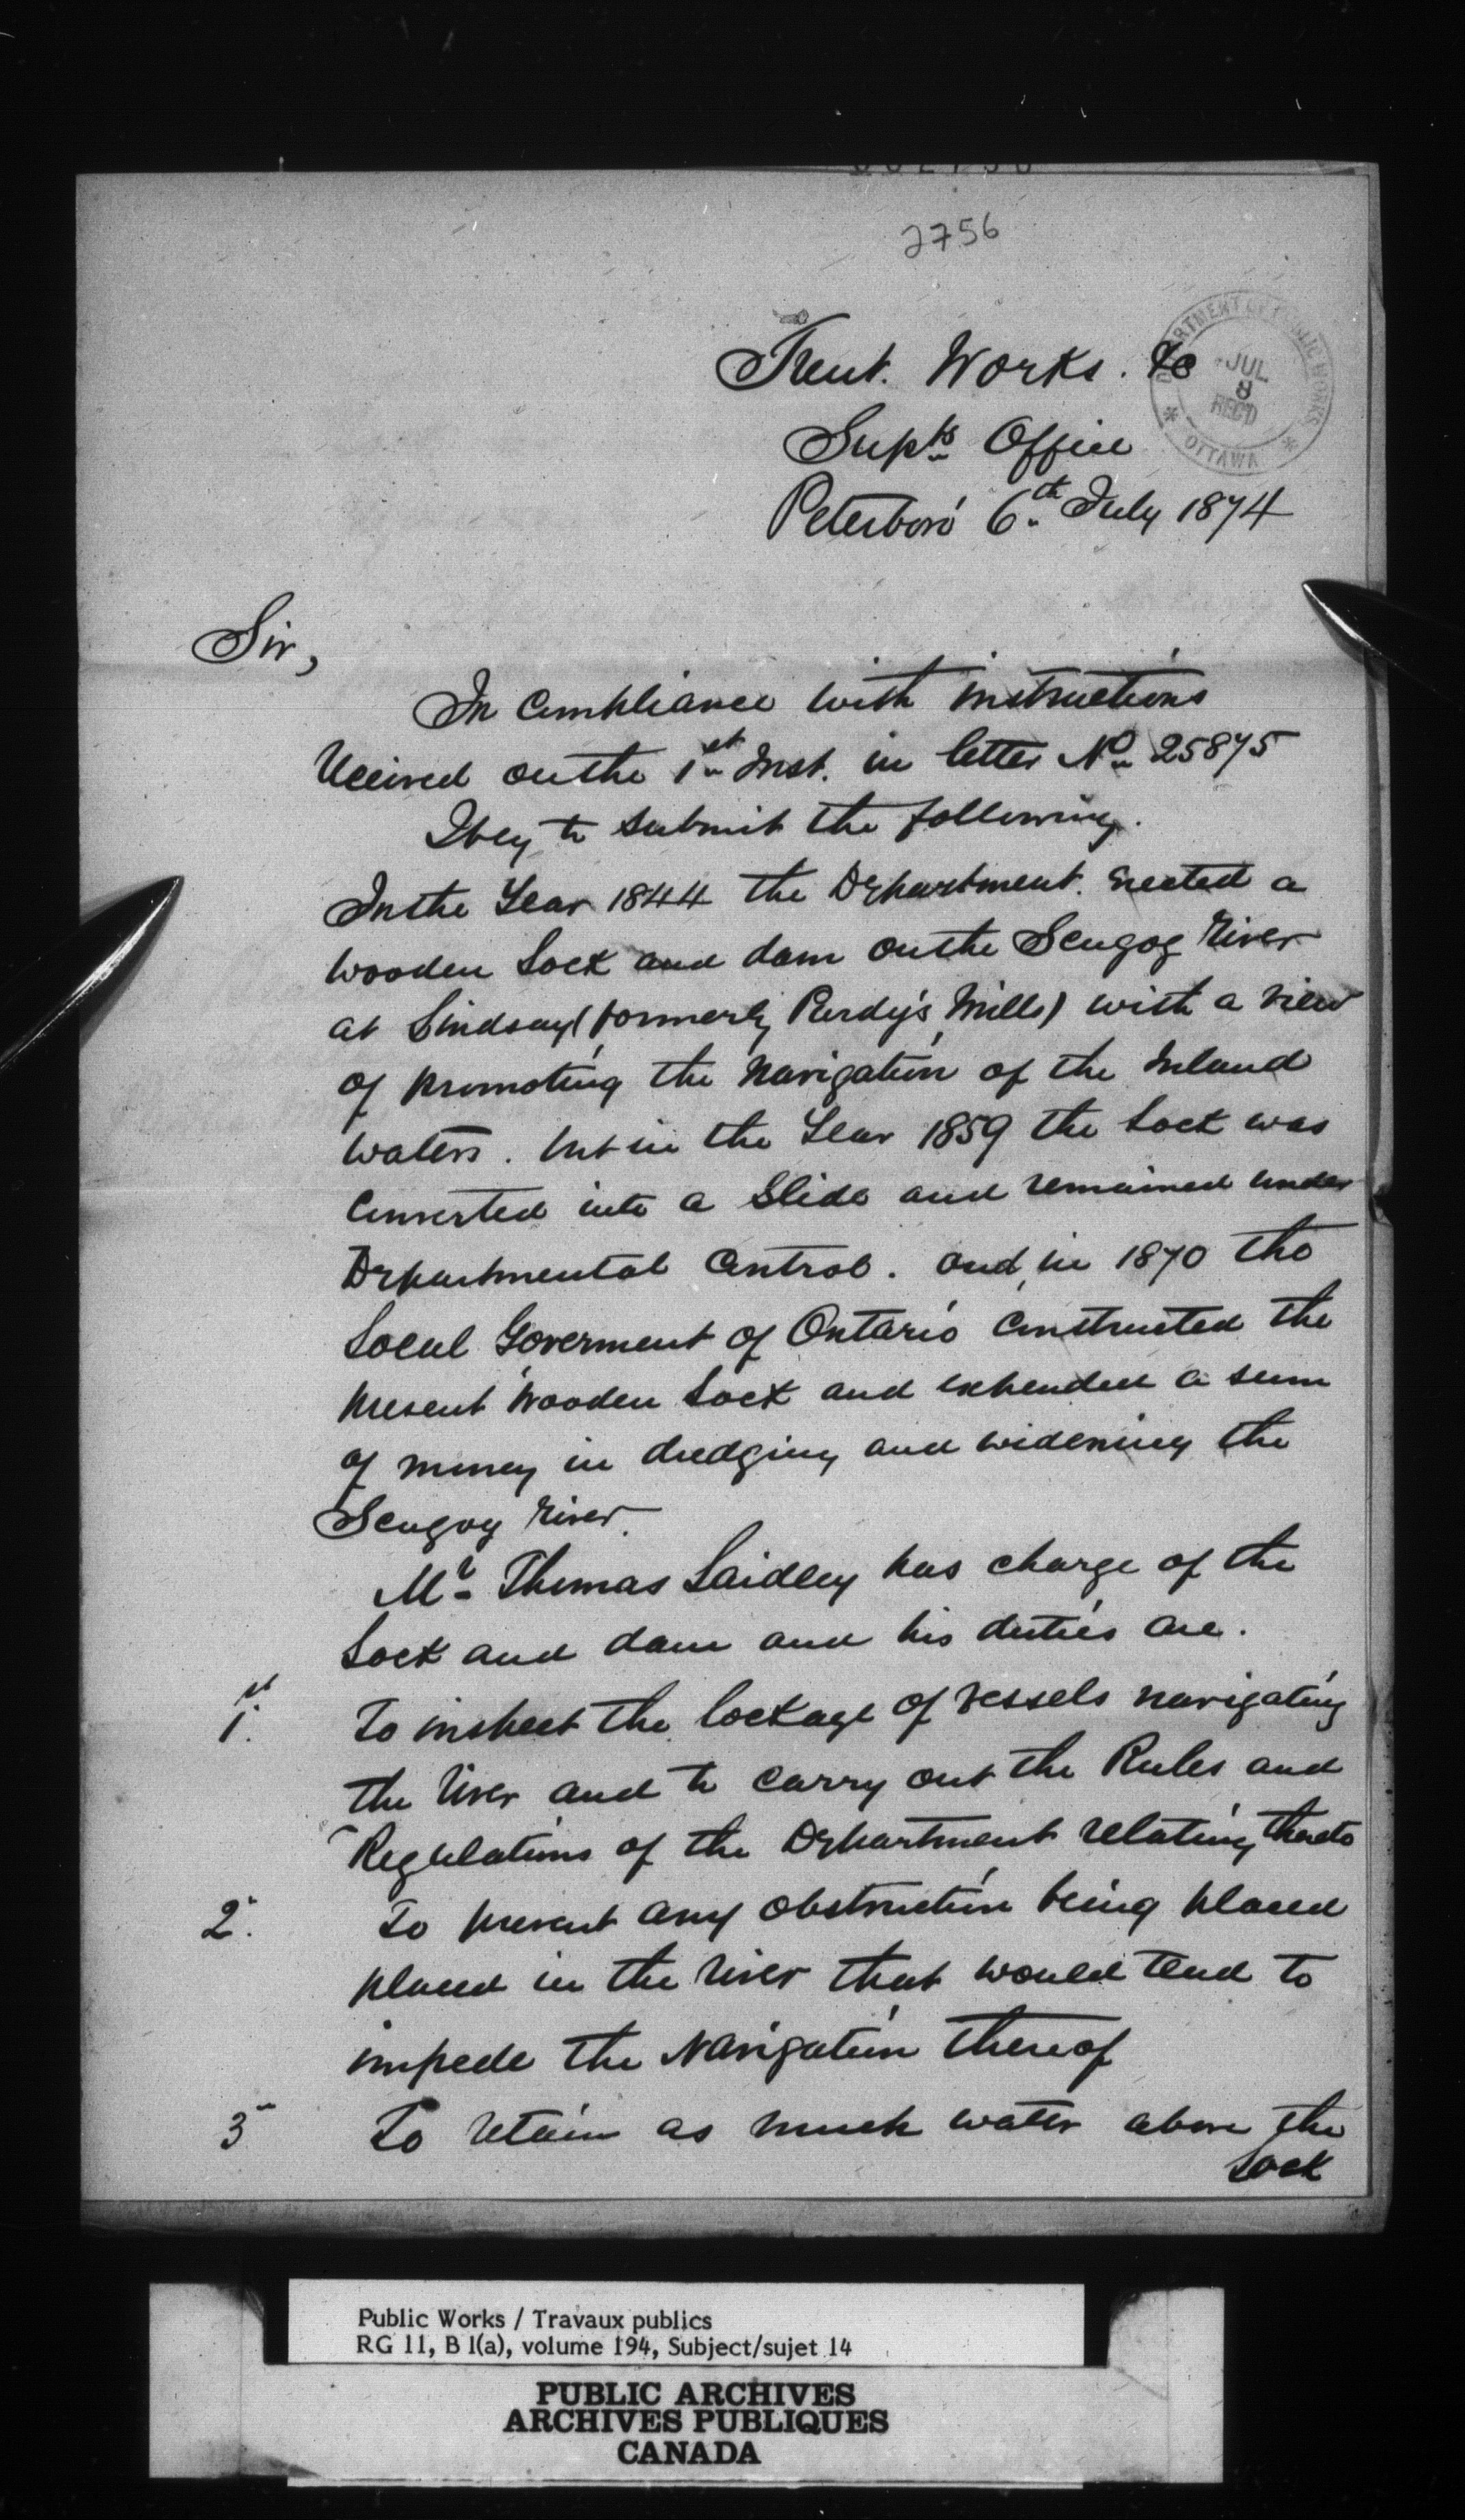 2756
Trent. Works. &c
Supts Office
Peterboro' 6th July 1874
DEPARTMENT OF PUBLIC WORKS
JUL
8
REC'D
OTTAWA
Sir,
In compliance with instructions
received on the 1st Inst. in letter No 25875
I beg to submit the following.
In the Year 1844 the Department. erected a
wooden Lock and dam on the Scugog River
at Lindsay (formerly Purdy's Mills) with a view
of promoting the navigation of the Inland
waters. but in the Year 1859 the Lock was
converted into a Slide and remained under
Departmental control. and in 1870 the
Local Goverment of Ontario constructed the
present wooden Lock and expended a sum
of money in dredging and widening the
Scugog River.
Mr Thomas Laidley has charge of the
Lock and dam and his duties are.
1st. To inspect the lockage of vessels navigating
the River and to carry out the Rules and
Regulations of the Department relating thereto
2. To prevent any obstruction being placed
placed in the river that would tend to
impede the Navigation thereof
3 To retain as much water above the
Lock
Public Works / Travaux publics
RG 11, B 1(a), volume 194, Subject/sujet 14
PUBLIC ARCHIVES
ARCHIVES PUBLIQUES
CANADA